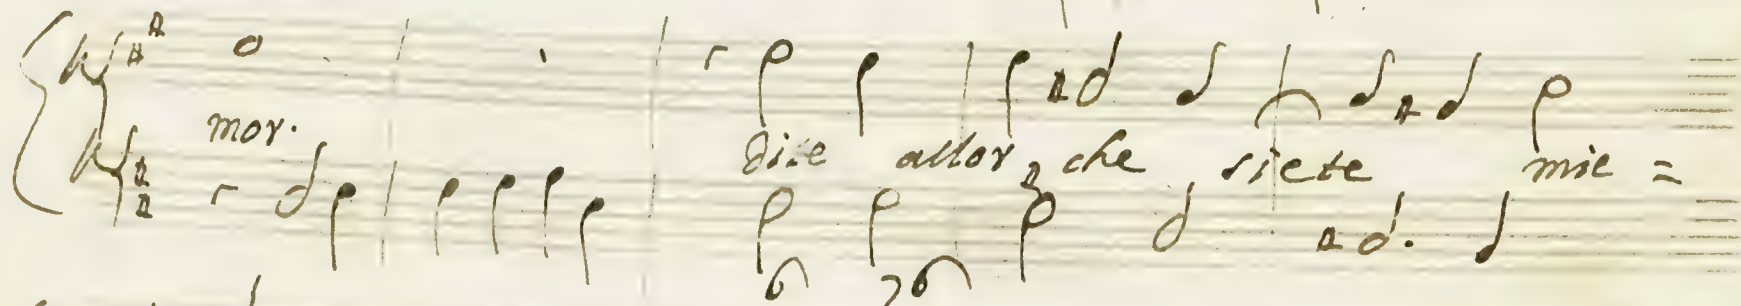 mor.
dite allor che siete mie =
6 6